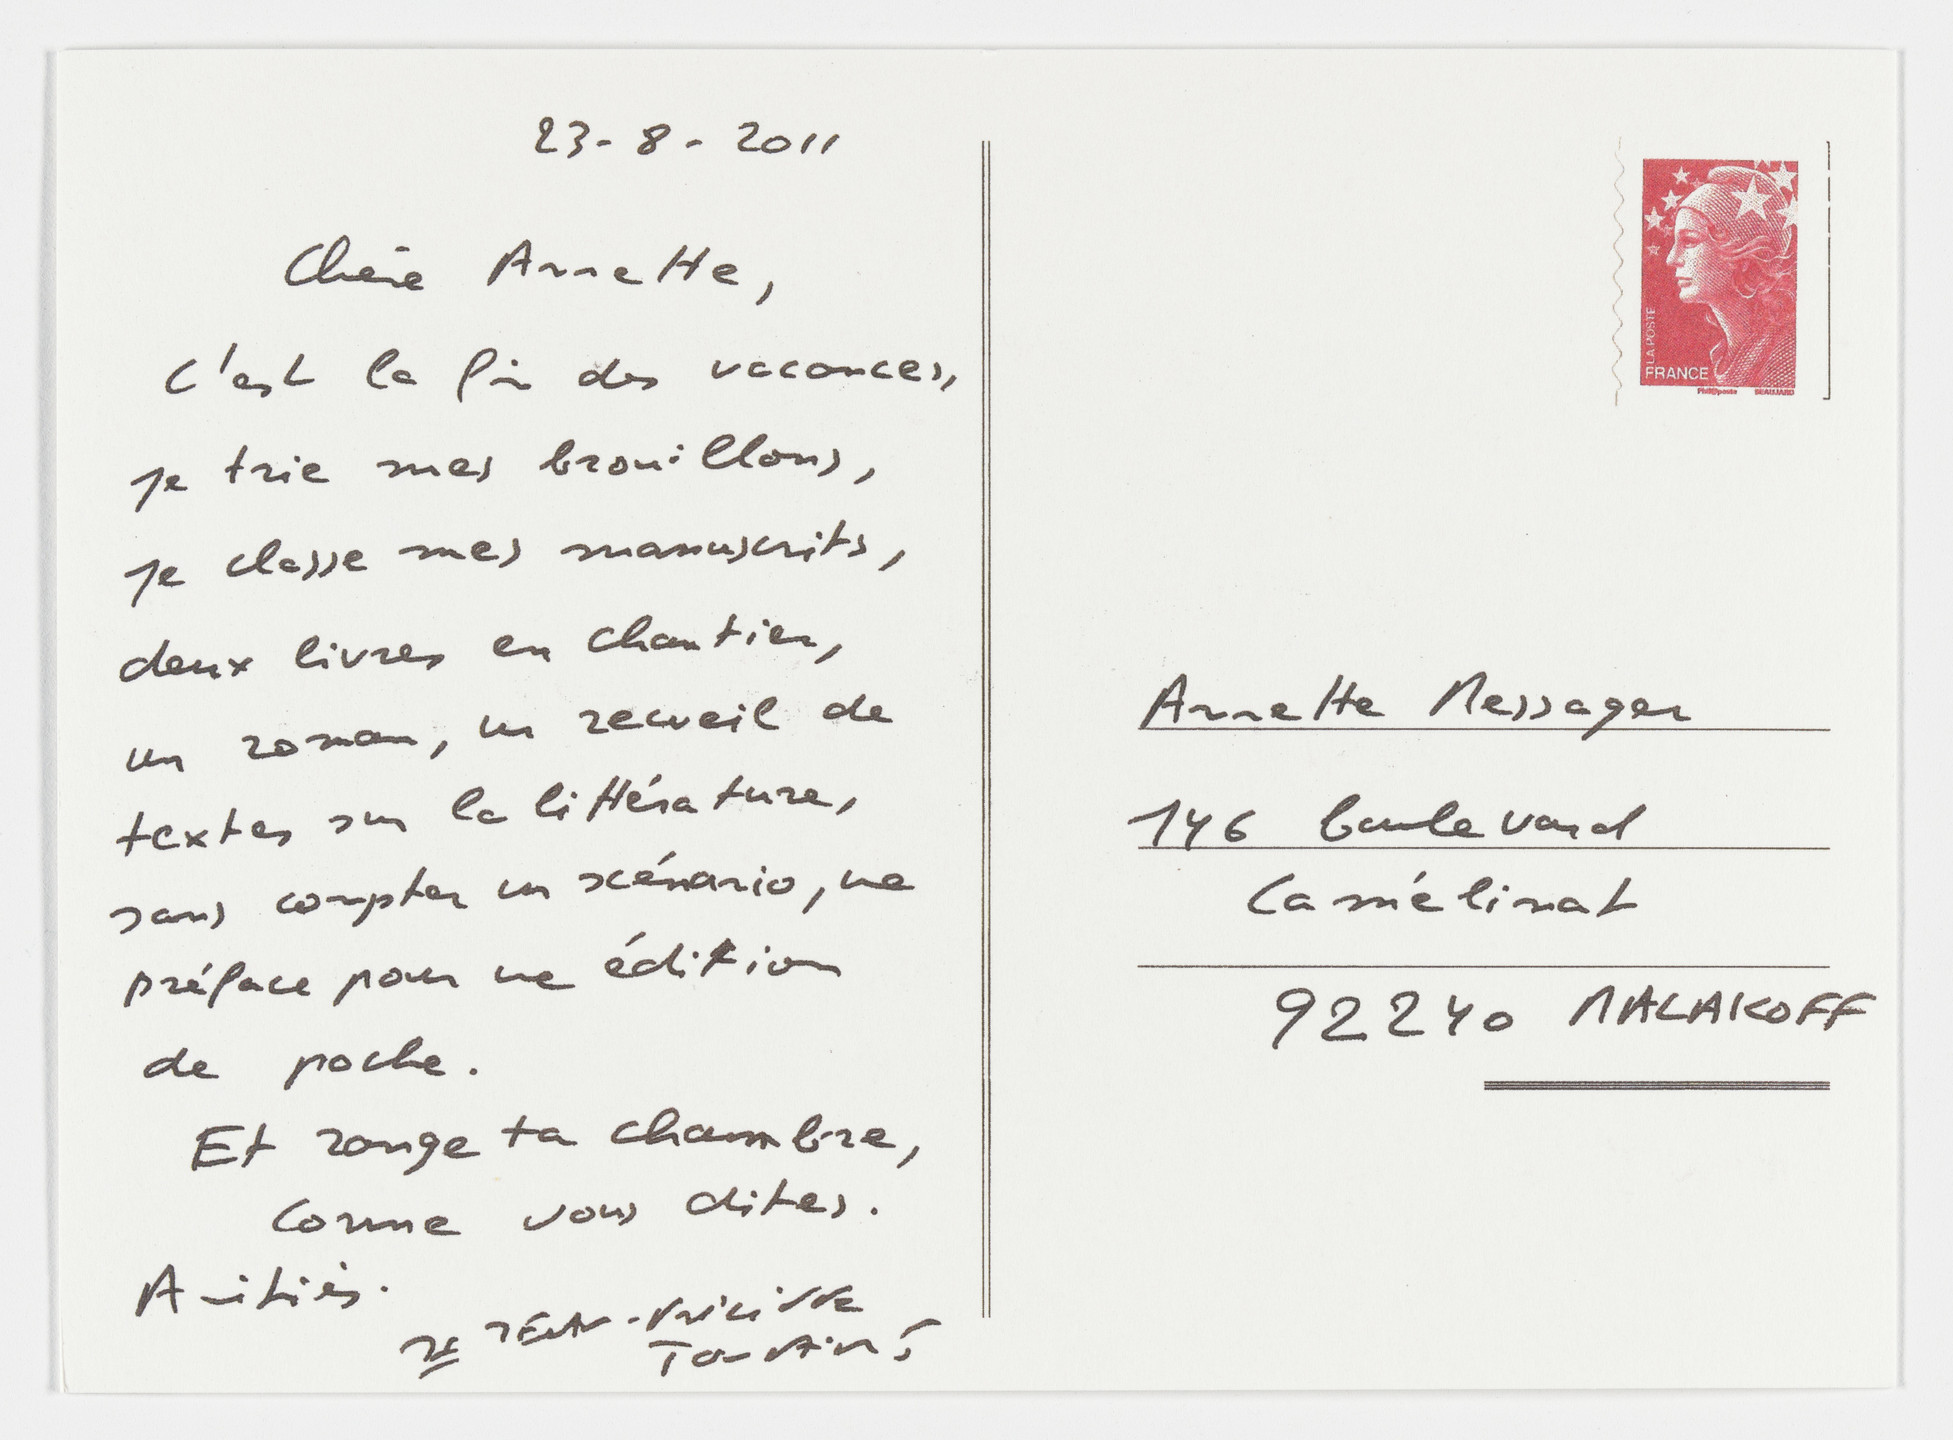 23-8-2011
Chère Annette,
C'est la fin des vacances,
je trie mes brouillons,
je classe mes manuscrits,
deux livres en chantier,
un roman, un recueil de
textes sur la littérature,
sans compter un scénario, une
préface pour une édition
de poche.
Et range ta chambre,
comme vous dites.
Amitiés.
Jean-Philippe
Toussaint
LA POSTE
FRANCE
Phil@poste BEAUJARD
Annette Messager
146 boulevard
Camélinat
92240 MALAKOFF